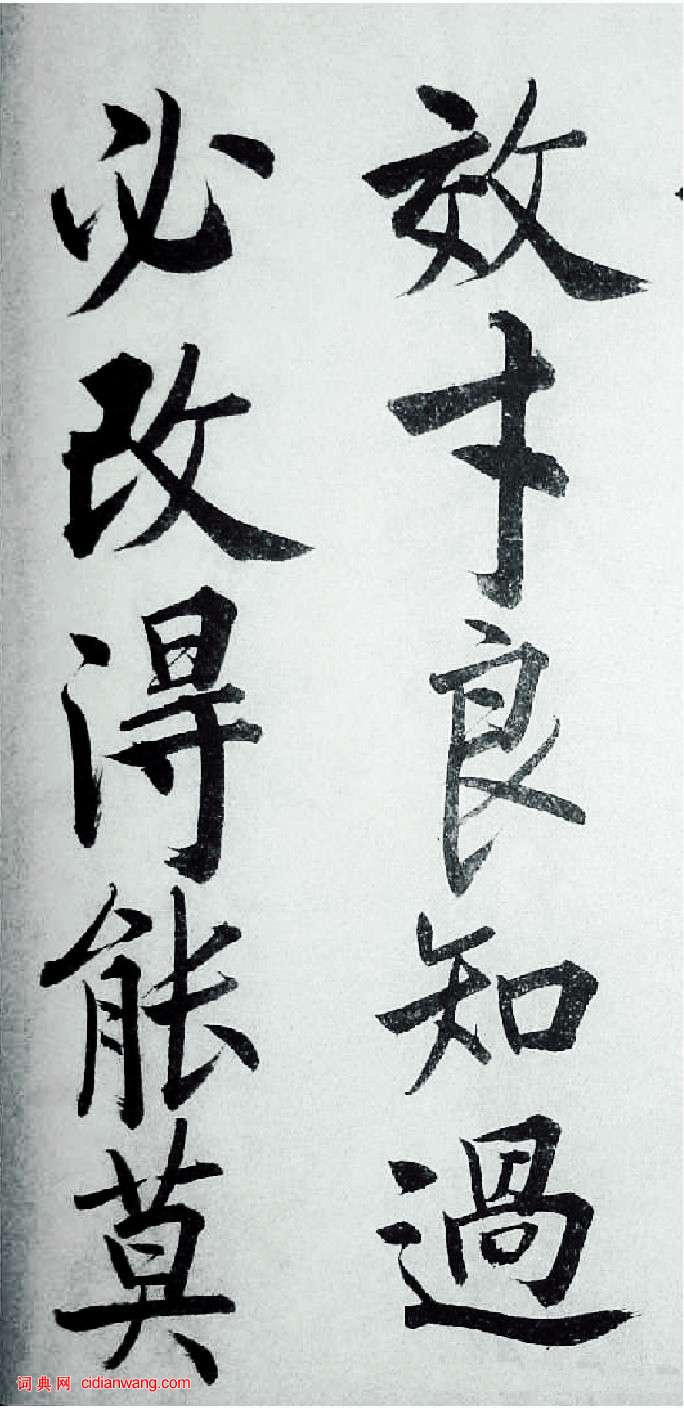 效才良知過
必改得能莫
词典网 cidianwang.com